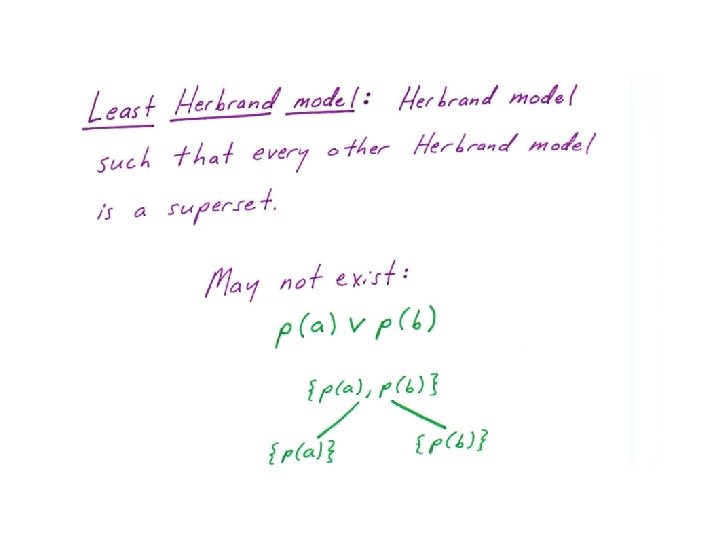 Least Herbrand model: Herbrand model
such that every other Herbrand model
is a superset.
May not exist:
p(a) ∨ p(b)
{p(a), p(b)}
{p(a)} {p(b)}